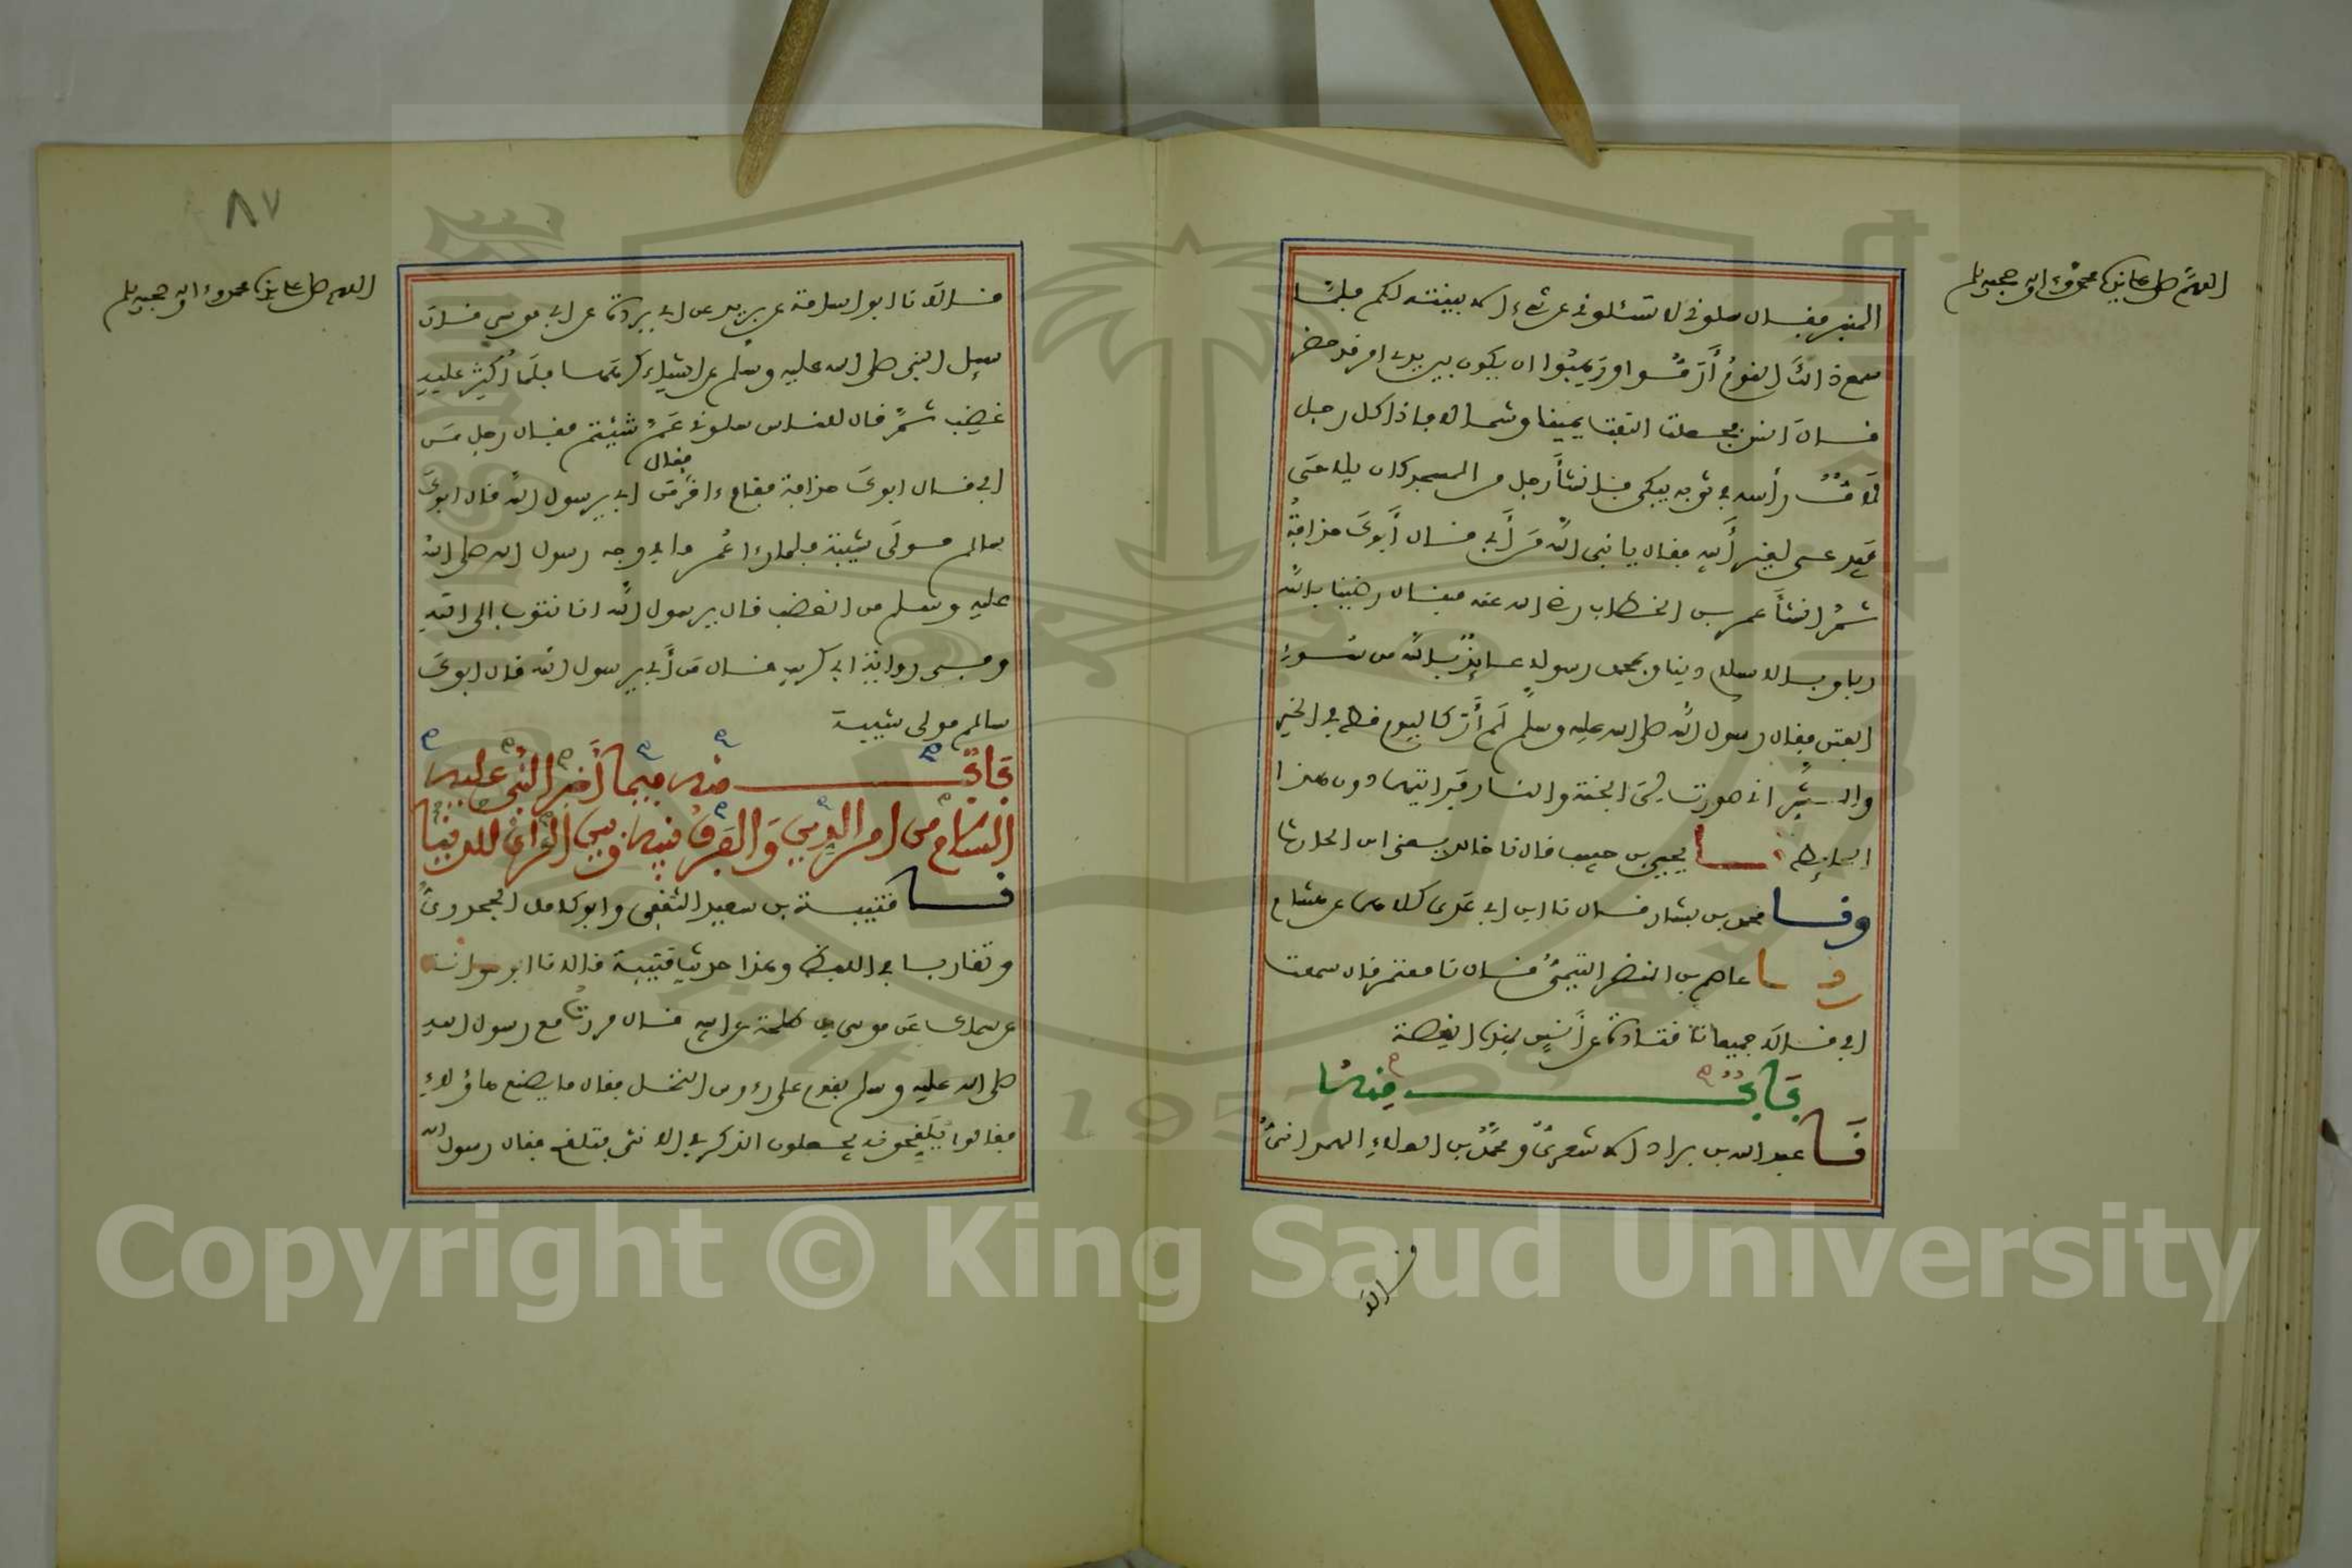 اللهم صل على نبينا محمد وءاله وصحبه وسلم
المنبر فقال سلوني لا تسئلوني عن شيء الا بينته لكم فلما
سمع ذالك القوم أرموا ورهبوا ان يكون بين يدي امر قد حضر
قال انس فجعلت التفت يمينا وشمالا فاذا كل رجل
لاف رأسه في ثوبه يبكي فانشأ رجل من المسجد كان يلاحى
فيدعى لغير أبيه فقال يا نبي الله من أبي قال أبوك حذافة
ثم انشأ عمر بن الخطاب رضي الله عنه فقال رضينا بالله
ربا وبالاسلام دينا وبمحمد رسولا عايذ بالله من سوء
الفتن فقال رسول الله صلى الله عليه وسلم لم أر كاليوم قط في الخير
والشر اني صورت لي الجنة والنار فرايتهما دون هذا
الحايط نا يحيى بن حبيب قال نا خالد يعني ابن الحارث
ونا محمد بن بشار قال نا ابن ابي عدي كلاهما عن هشام
ونا عاصم بن النضر التيمي قال نا معتمر قال سمعت
ابي قالا جميعا نا قتادة عن أنس بهذه القصة
باب منه
نا عبد الله بن براد الاشعري ومحمد بن العلاء الهمداني
قالا
٨٧
اللهم صل على نبينا محمد وءاله وصحبه وسلم
قالا نا ابو اسامة عن بريد عن ابي بردة عن ابي موسى قال
سيل النبي صلى الله عليه وسلم عن اشياء كرهها فلما أكثر عليه
غضب ثم قال للناس سلوني عم شئتم فقال رجل من
ابي قال ابوك حذافة فقام ءاخر فقال من ابي يرسول الله قال ابوك
سالم مولى شيبة فلما رءا عمر ما في وجه رسول الله صلى الله
عليه وسلم من الغضب قال يرسول الله انا نتوب الى الله
وفي رواية ابي كريب قال من أبي يرسول الله قال ابوك
سالم مولى شيبة
باب منه فيما أخبر النبي عليه
السلام من امر الدين والفرق فيه وبين الراي للدنيا
نا قتيبة بن سعيد الثقفي وابو كامل الجحدري
وتقاربا في اللفظ وهذا حديث قتيبة قالا نا ابو عوانة
عن سماك عن موسى بن طلحة عن ابيه قال مررت مع رسول الله
صلى الله عليه وسلم بقوم على رءوس النخل فقال ما يصنع هاؤلاء
فقالوا يلقحونه يجعلون الذكر في الانثى فتلقح فقال رسول الله
Copyright © King Saud University
1957